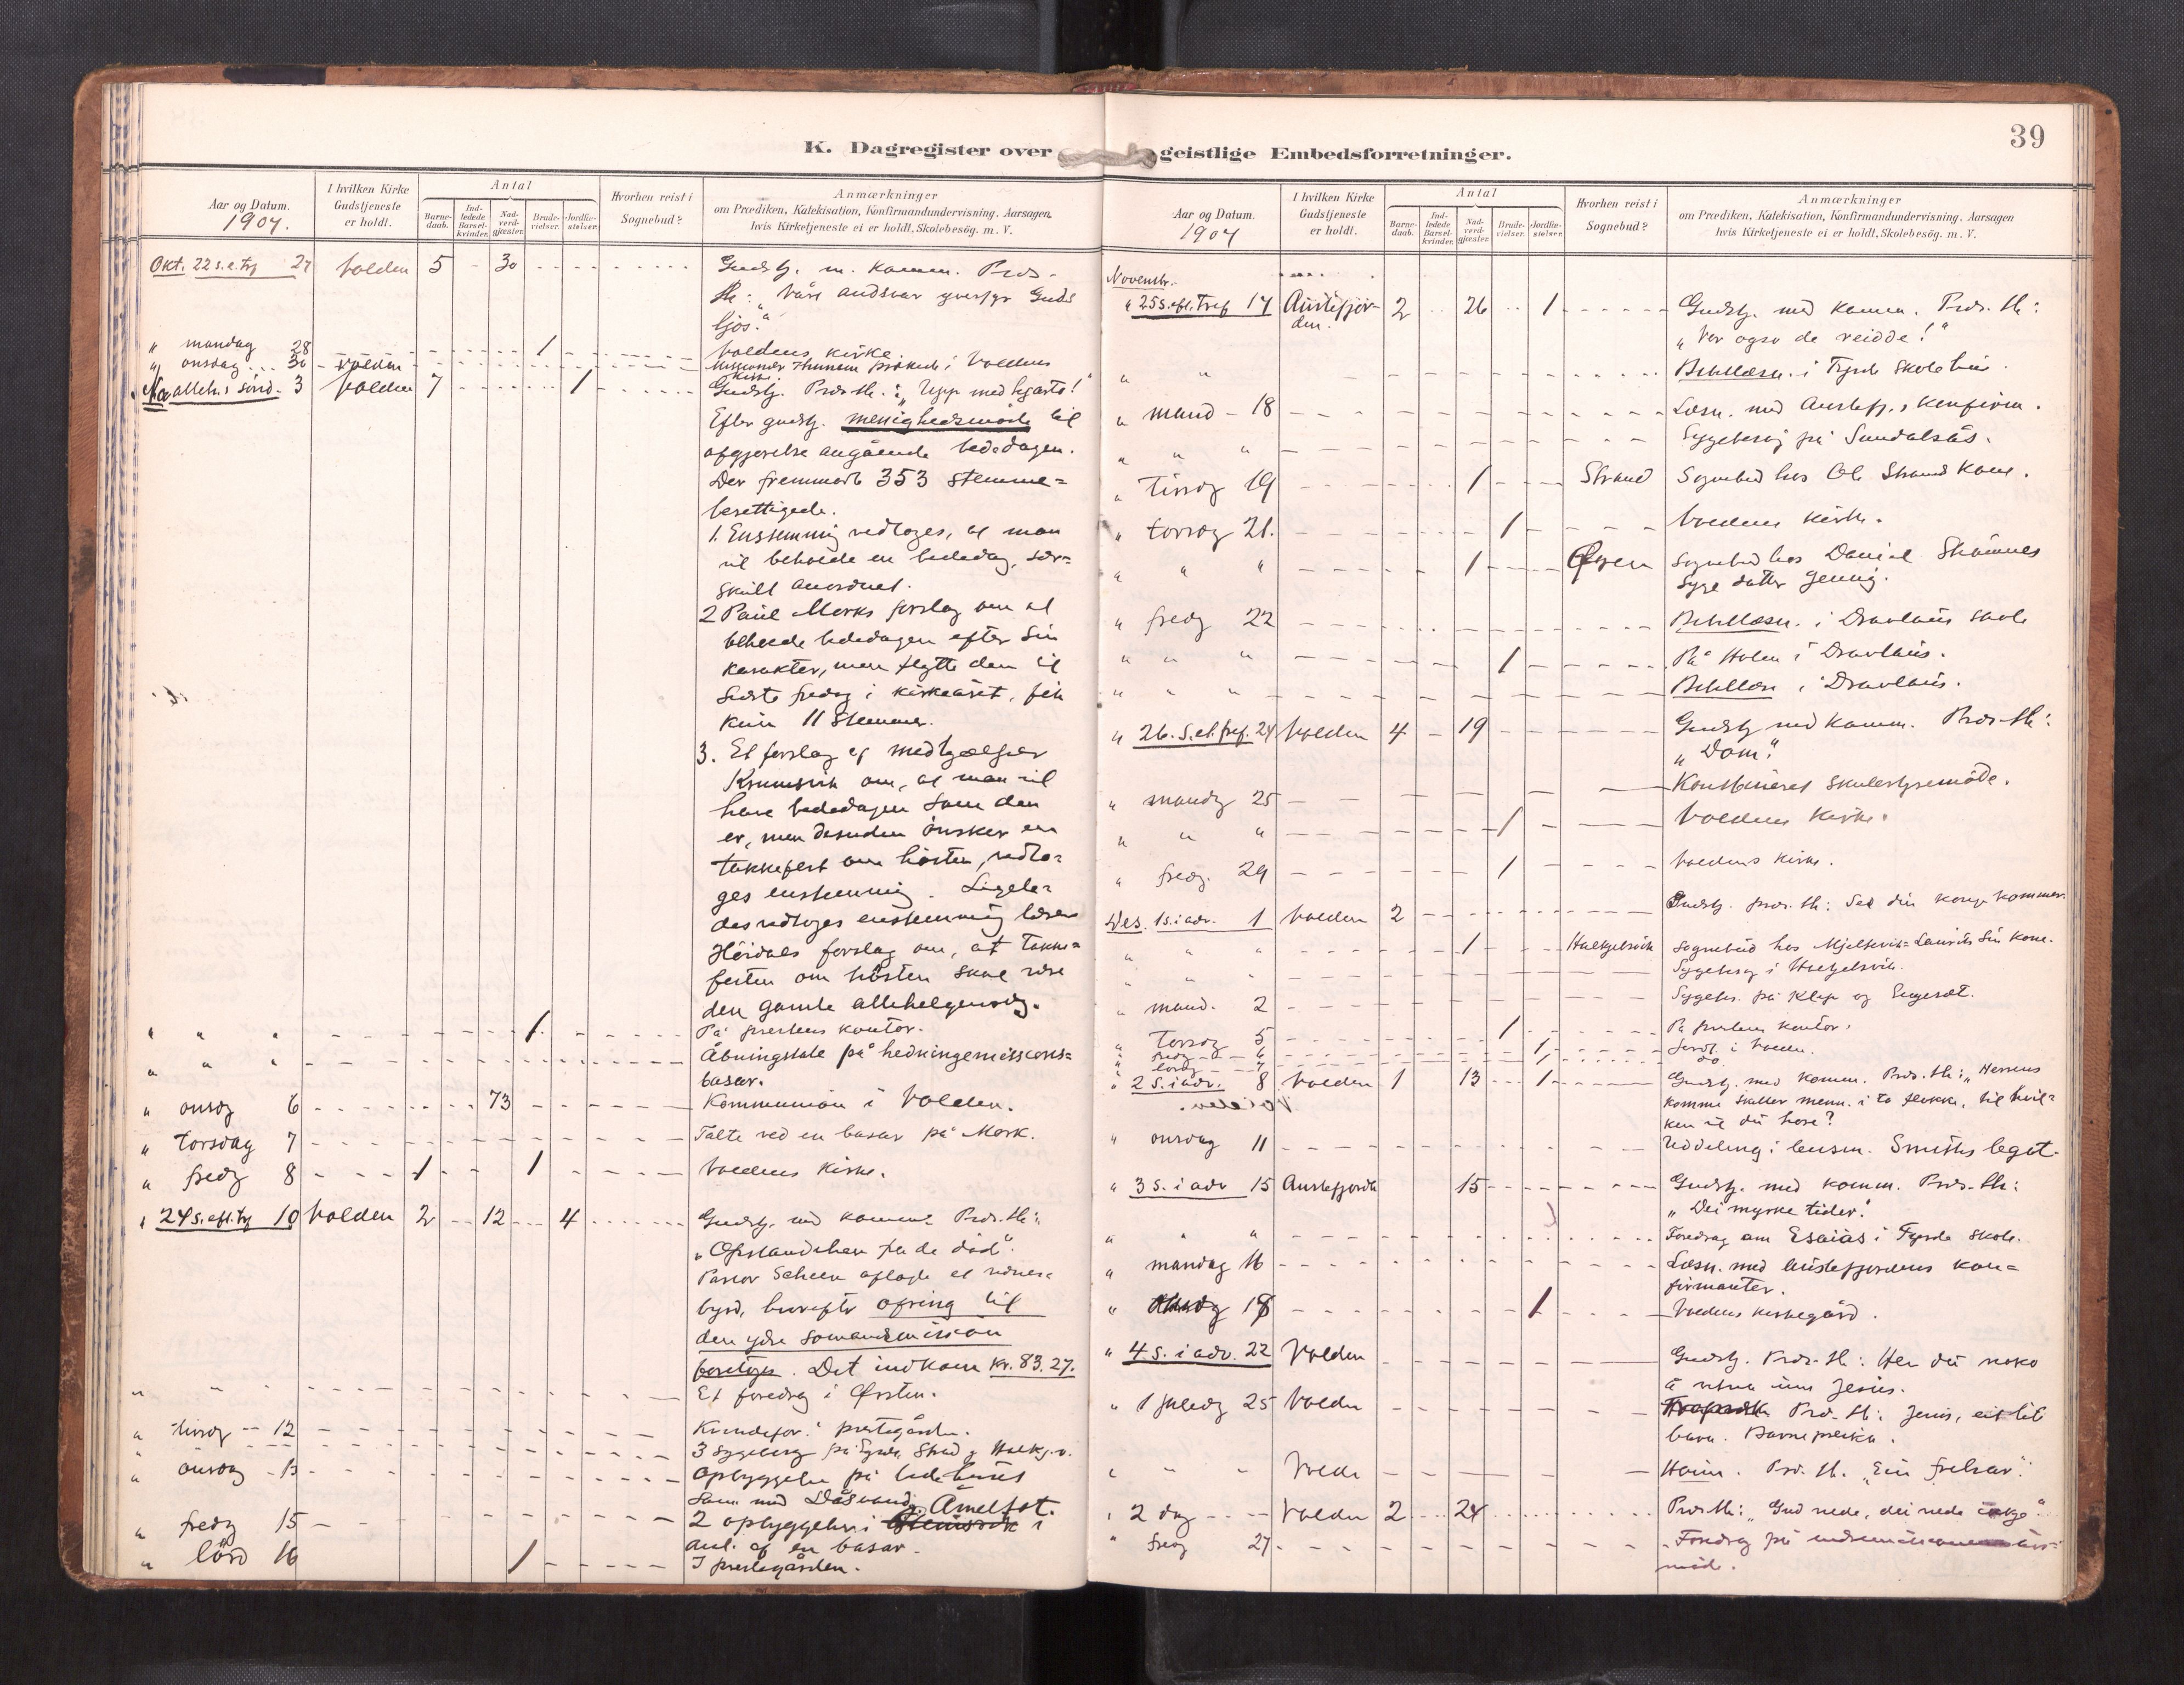 39
K. Dagregister over geistlige Embedsforretninger.
Aar og Datum. 1907.
I hvilken Kirke Gudstjeneste er holdt.
Antal
Barne-daab. Ind-ledede Barsel-kvinder. Nad-verd-gjester. Brude-vielser. Jordfæ-stelser.
Hvorhen reist i Sognebud?
Anmærkninger
om Prædiken, Katekisation, Konfirmandundervisning. Aarsagen
hvis Kirketjeneste ei er holdt, Skolebesög. m. V.
Okt. 22 s.e.tr 27 Volden 5 - 30 Gudstj. m. komm. Præs.
th: "Våre andsvar yverfyr Guds
ljos."
" mandag 28 1 Voldens kirke
" onsdag 30 Volden Missionær præket i Voldens
kirke.
Nov allehs sönd. 3 Volden 7 1 Gudstj. Præs. th.: "Upp med hjarto!"
Efter gudstj. menighedsmöde til
afgjörelse angående bededagen.
Der fremmödt 353 stemme=
berettigede.
1. Enstemmig vedtoges, at man
vil beholde en bededag, sær=
skilt anordnet.
2 Paul Morks forslag om at
beholde bededagen efter sin
karakter, men flytte den til
sidste fredag i kirkeåret, fik
kun 11 stemmer.
3. Et forslag af medhjælper
Krumsvik om, at man vil
have bededagen som den
er, men desuden önsker en
takkefest om hösten, vedto=
ges enstemmig. Ligele=
des vedtoges enstemmig lærer
Höidals forslag om, at takke=
festen om hösten skal være
den gamle allehelgensdag.
" " " 1 På prestens kontor.
" " " Åbningstale på hedningemissions=
basar.
" onsdg 6 73 Kommunion i Volden.
" Torsdag 7 Talte ved en basar på Mork.
" fredg 8 1 1 Voldens kirke.
" 24 s.eft.tr 10 Volden 2 12 4 Gudstj. med komm. Præs. th:
"Opstandelsen fra de död".
Pastor Scheen aflagde et vidnes=
byrd, hvorefter ofring til
den ydre sömandsmission
foretoges. Det indkom kr. 83.27.
" " Et foredrag i Ørsten.
" tirsdg 12 Kvindefor. i prestegården.
3 sygebesög på
" onsdag 13 Opbyggelse på bedehuset
sam. med
" fredg 15 2 opbyggelser i Åmelfot. i
anl. af en basar.
" lörd 16 1 I prestegården.
Aar og Datum. 1907
I hvilken Kirke Gudstjeneste er holdt.
Antal
Barne-daab. Ind-ledede Barsel-kvinder. Nad-verd-gjester. Brude-vielser. Jordfæ-stelser.
Hvorhen reist i Sognebud?
Anmærkninger
om Prædiken, Katekisation, Konfirmandundervisning. Aarsagen
hvis Kirketjeneste ei er holdt, Skolebesög. m. V.
Novembr.
" 25 s.eft. Tref 17 Austefjor-den. 2 26 1 Gudstj. med komm. Præs. th:
"Ver ogso de reidde!"
" " Bibellæsn. i Fyrde skolehus.
" mand 18 Læsn. med Austefj.s konfirm.
" " " Sygebesög på Sundalsås.
" Tirsdg 19 1 Strand Sognebud hos Ole Strands kone.
" torsdg 21. 1 Voldens kirke.
" " " 1 Øyen Sognebud hos Daniel
syge datter
" fredg 22 Bibellæsn. i Dravlaus skole
" " " 1 På Holen i Dravlaus.
" " " Bibellæsn i Dravlaus.
" 26. s.et.tref. 24 Volden 4 19 Gudstj med komm. Præs-th:
"Dom".
" mandg 25 Kombineret skolestyremöde.
" " " 1 Voldens kirke.
" fredg. 29 1 Voldens kirke.
Des. 1 s. i adv. 1 Volden 2 Gudstj. præs. th: Sæl din konge kommer.
" " " 1 Halkjelsvik Sognebud hos Mjelkevik-Laurits sin kone.
" " " Sygebesög i Halkjelsvik.
" mand. 2 Sygebs. på Klep og Engeset.
" Torsdg 5 1 På prestens kontor.
" fredg 6 1 Jordf. i Volden.
" lördg 7 1 do
" 2 s. i adv. 8 Volden 1 13 1 Gudstj. med komm. Præs. th: "Herrens
komme skiller menn. i to flokke, til hvil=
ken vil du höre?
" onsdag 11 Uddeling i lensm. Smiths legat.
" 3 s. i adv 15 Austefjorden 15 Gudstj. med komm. Præs. th:
"Dei myrke tider."
" " " Foredrag om Esaias i Fyrde skole.
" mandag 16 Læsn. med Austefjordens kon=
firmanter.
" 18 1 Voldens kirkegård.
" 4. s. i adv. 22 Volden Gudstj. Præs. th: Hev du noko
å vitna um Jesus.
" 1 juledg 25 Volden Præ. th: Jesus, eit lite
barn. Barnepreika.
" " " Volde Præ. th. "Ein frelsar".
" 2 dg Volden 2 24 Præs th: "Gud rede, dei rede ikkje".
" fredg 27 Foredrag på indremissionens års=
möde.